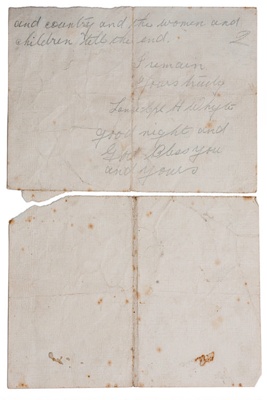 and country and the women and
children till the end. 2
I remain
Yours truly

good night and
God bless you
and yours